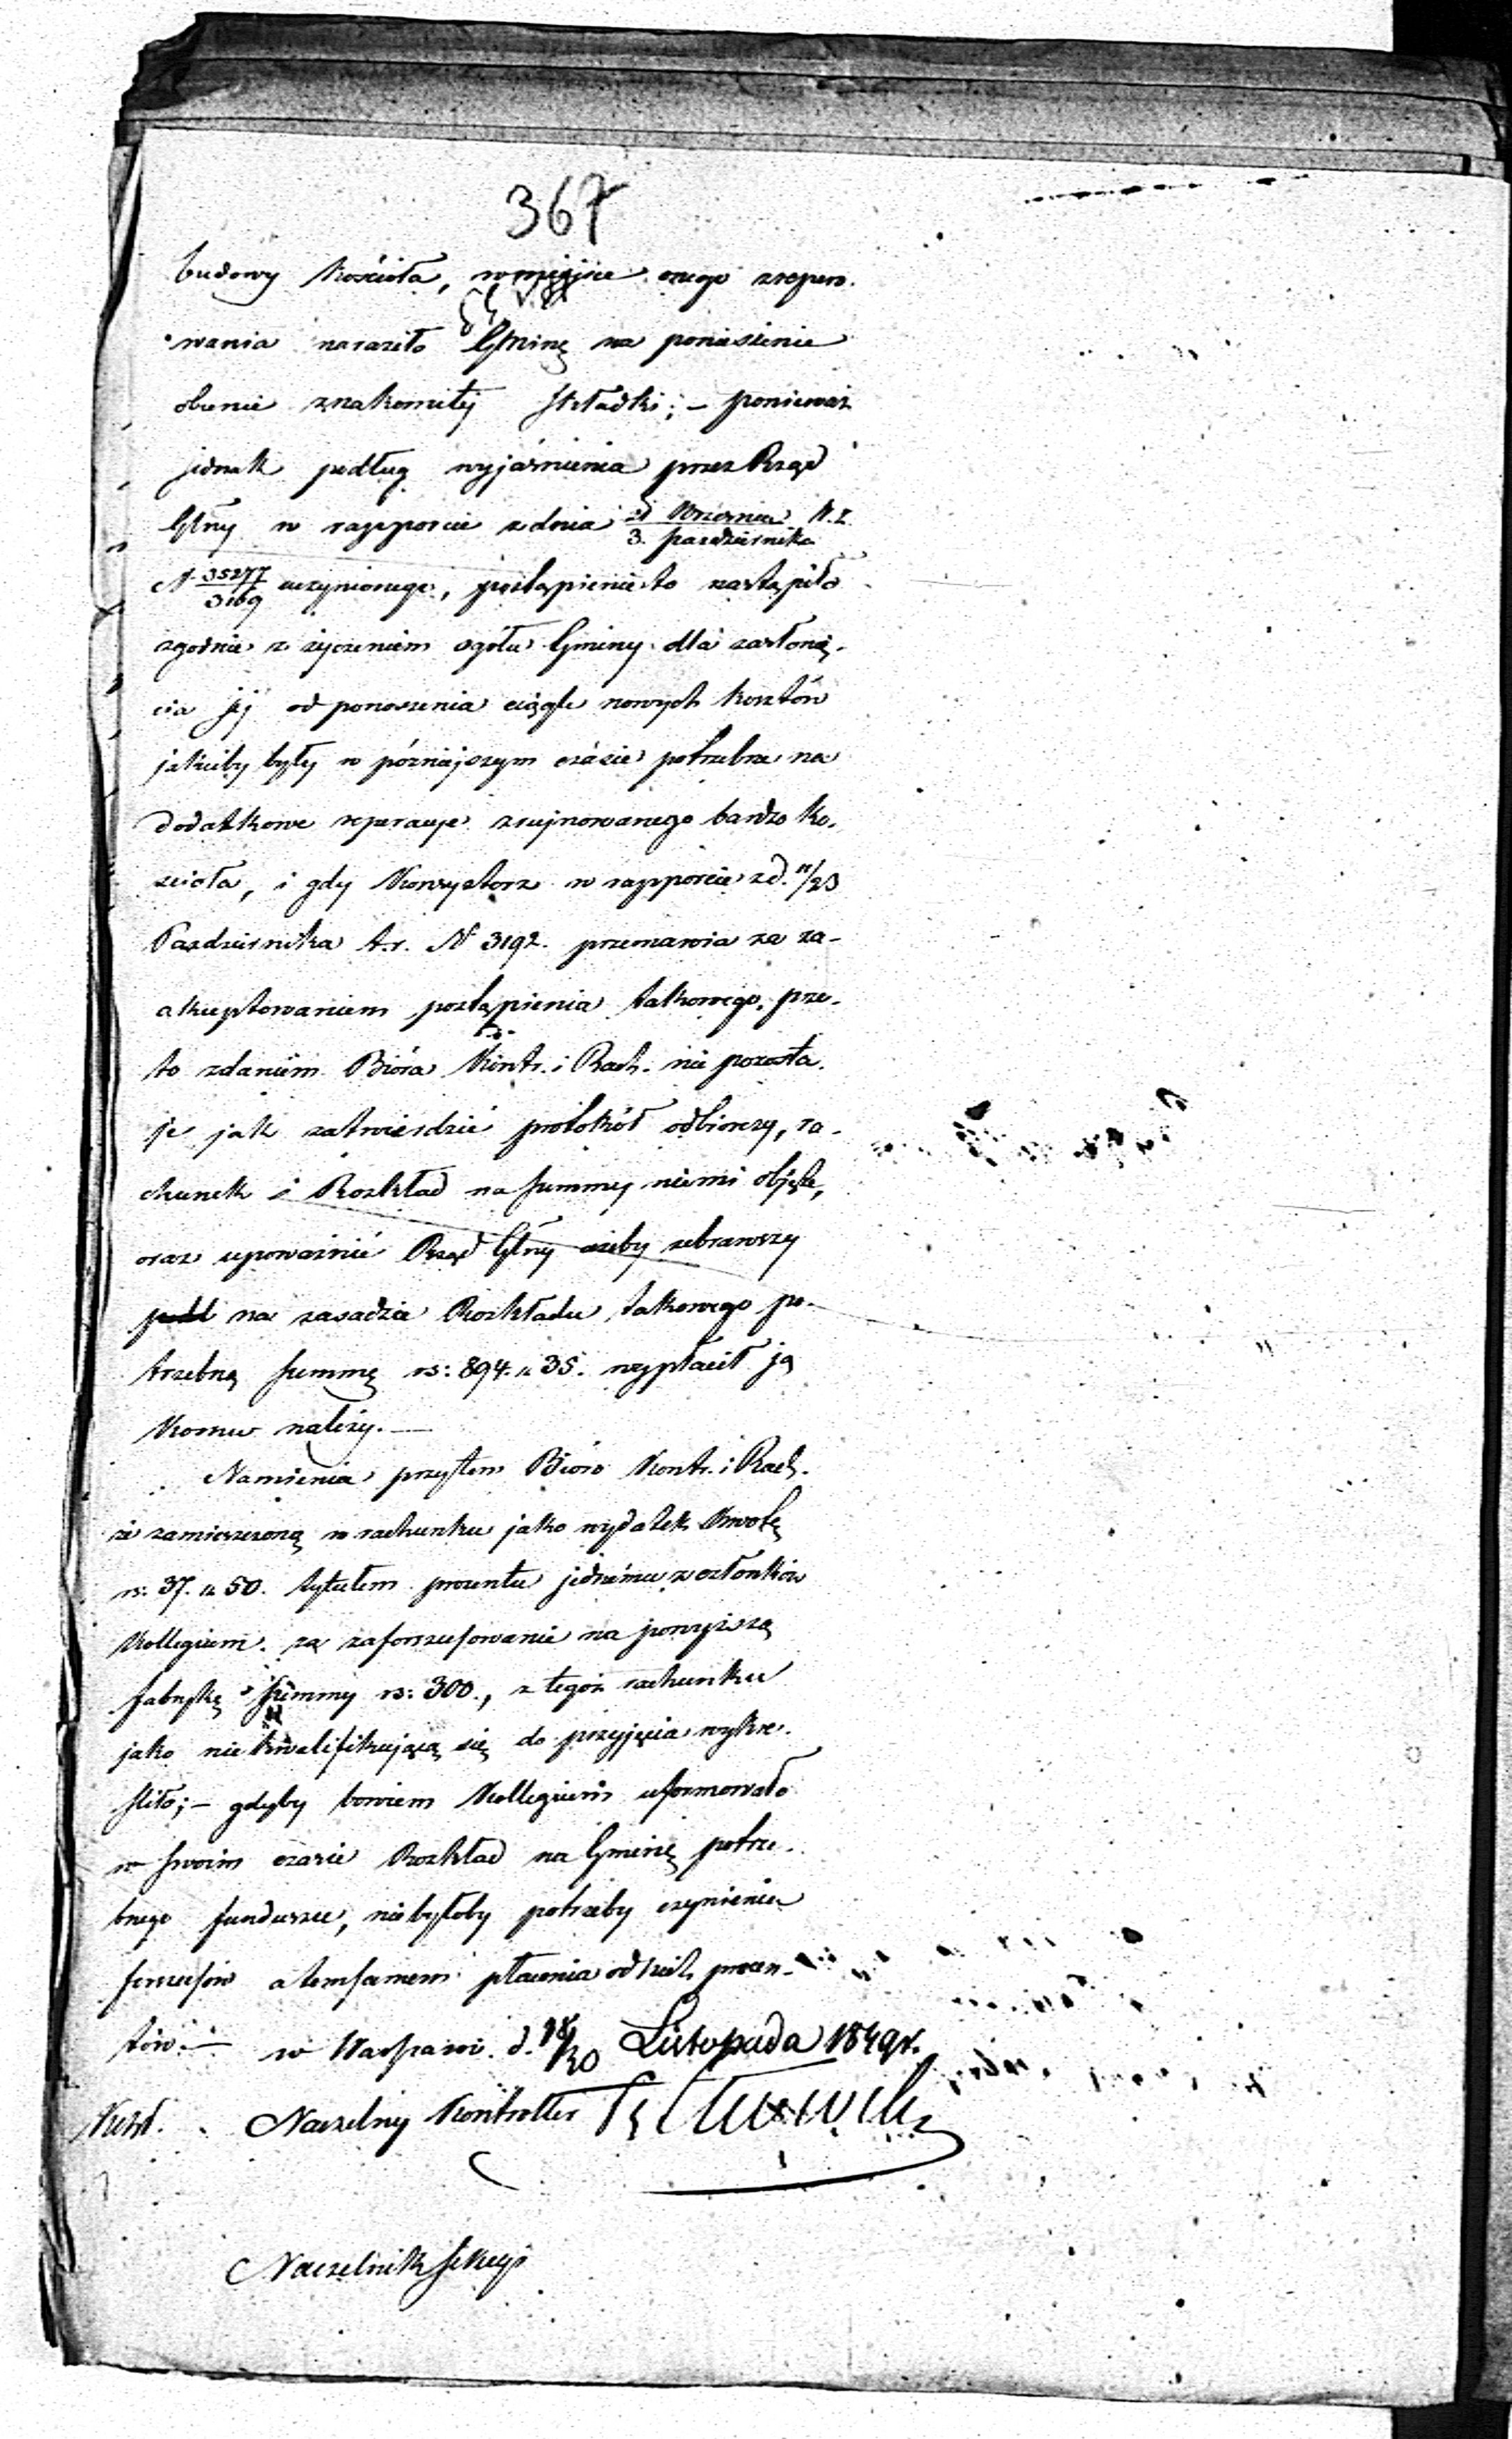 367
budowy Kościoła, w miejsce onego zrepero-
wania naraziło Gminę na poniesienie
obecnie znakomitéj Składki; – ponieważ
jednak podług wyjaśnienia przez Rząd
Glny w rapporcie z dnia 21 Września / 3. października N.
N. 35277/3169 uczynionego, postąpienie to nastąpiło
zgodnie z życzeniem ogółu Gminy dla zasłonię-
cia jéj od ponoszenia ciągle nowych kosztów
jakieby były w późniejszym czasie potrzebne na
dodatkowe reperacye zrujnowanego bardzo ko-
scioła, i gdy Konsystorz w rapporcie z d. 11/23
Pazdziernika t.r. N 3192. przemawia za za-
akceptowaniem postąpienia takowego, prze-
to zdaniem Bióra Kontr. i Rach. nie pozosta-
je jak zatwierdzić protokół odbiorczy, ra-
chunek i Rozkład na Summy niemi objęte,
oraz upoważnić Rząd Glny ażeby zebrawszy
podl na zasadzie Rozkładu takowego po-
trzebną Summę rs: 894. k 35. wypłacił ją
Komu należy. —
Namienia przytem Bióro Kontr. i Rach.
że zamieszczoną w rachunku jako wydatek Kwotę
rs: 37. k 50. tytułem procentu jednemu z członków
Kollegium za zaforszusowanie na powyższą
fabrykę Summy rs: 300., z tegoż rachunku
jako nie kwalifikującą się do przyjęcia wykre-
sliło; – gdyby bowiem Kollegium uformowało
w swoim czasie Rozkład na Gminę potrze-
bnego funduszu, nie byłoby potrzeby czynienia
forszusów a tem samem płacenia od nich procen-
tów. — w Warszawie d. 18/30 Listopada 1849 r.
Naczelny Kontroller
Naczelnik Sekcyi